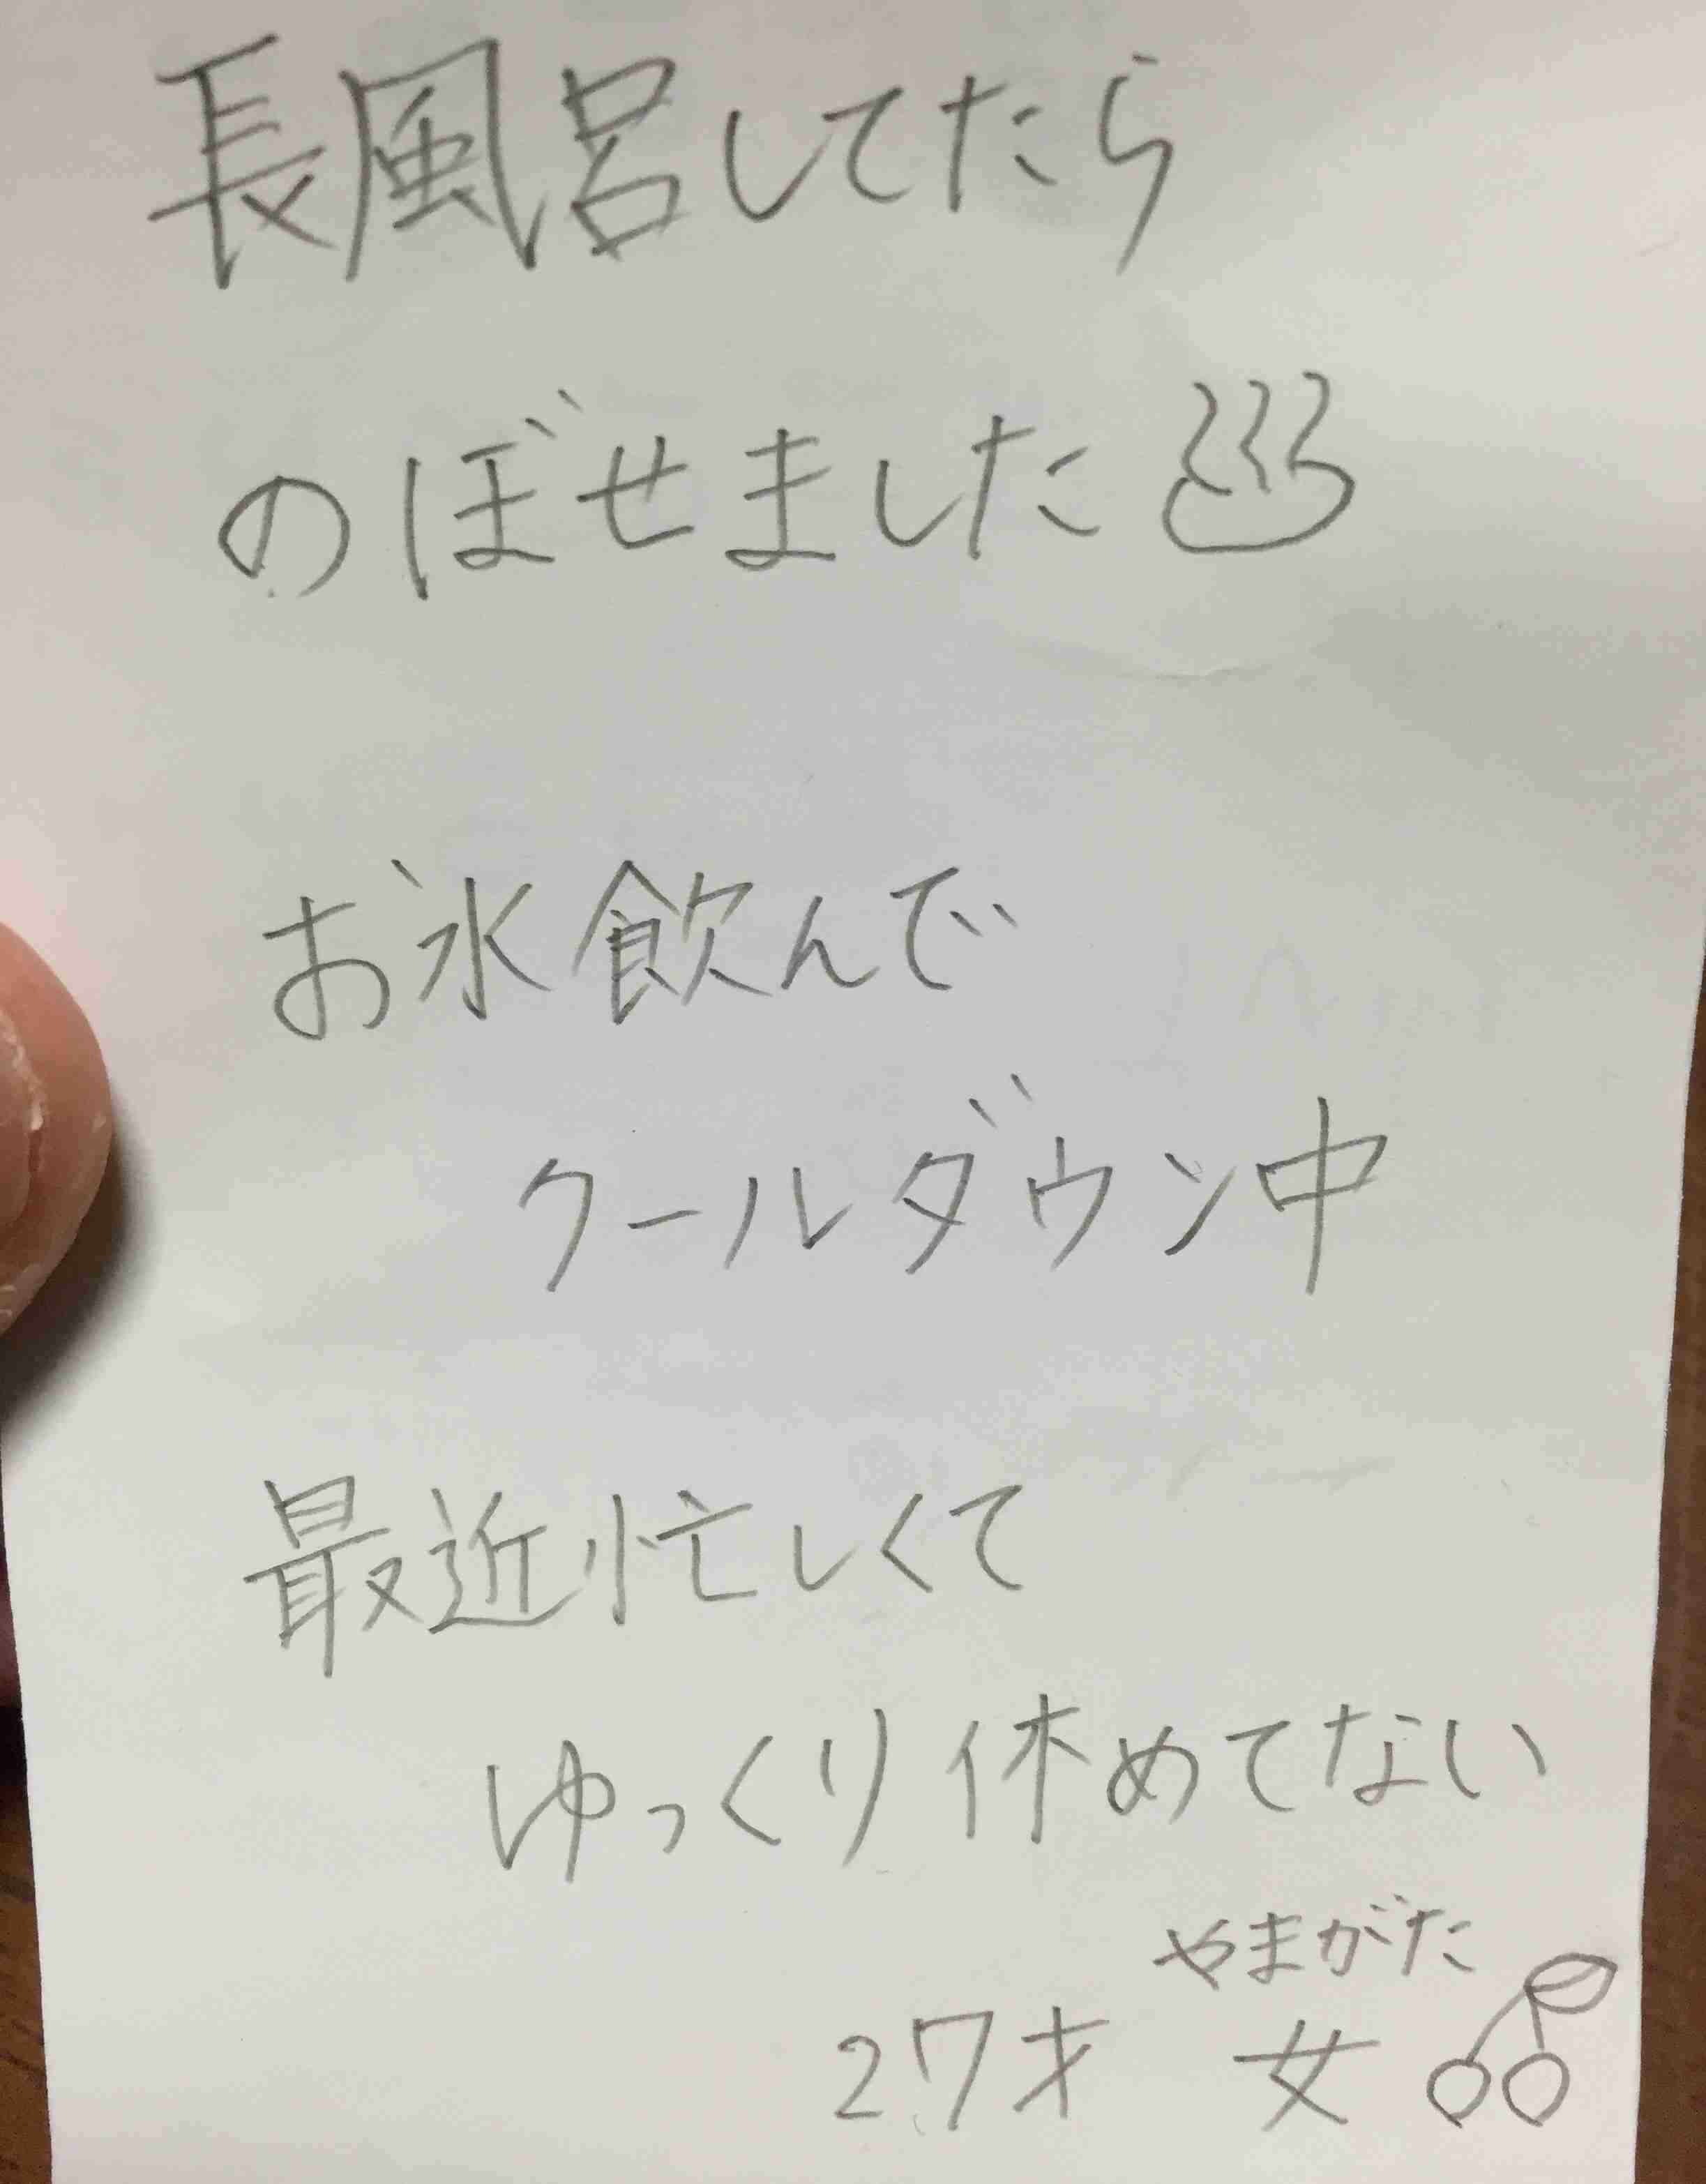 長風呂してたら
のぼせました♨
お水飲んで
クールダウン中
最近忙しくて
ゆっくり休めてない
やまがた
27才 女